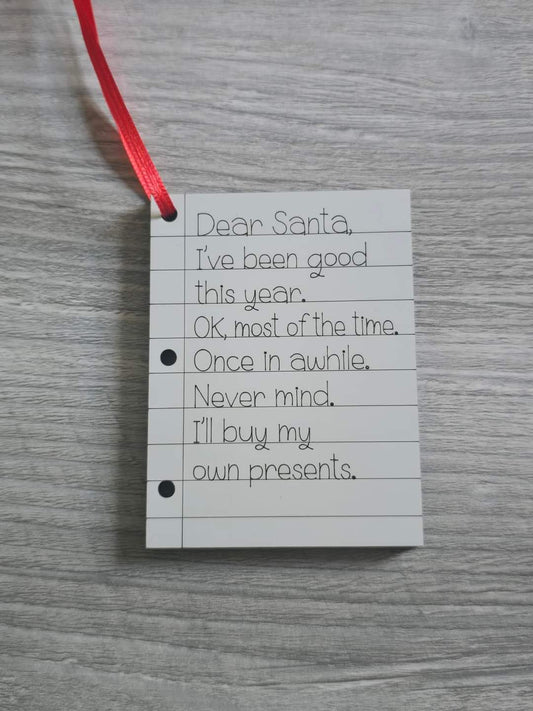 Dear Santa,
I've been good
this year.
OK, most of the time.
Once in awhile.
Never mind.
I'll buy my
own presents.